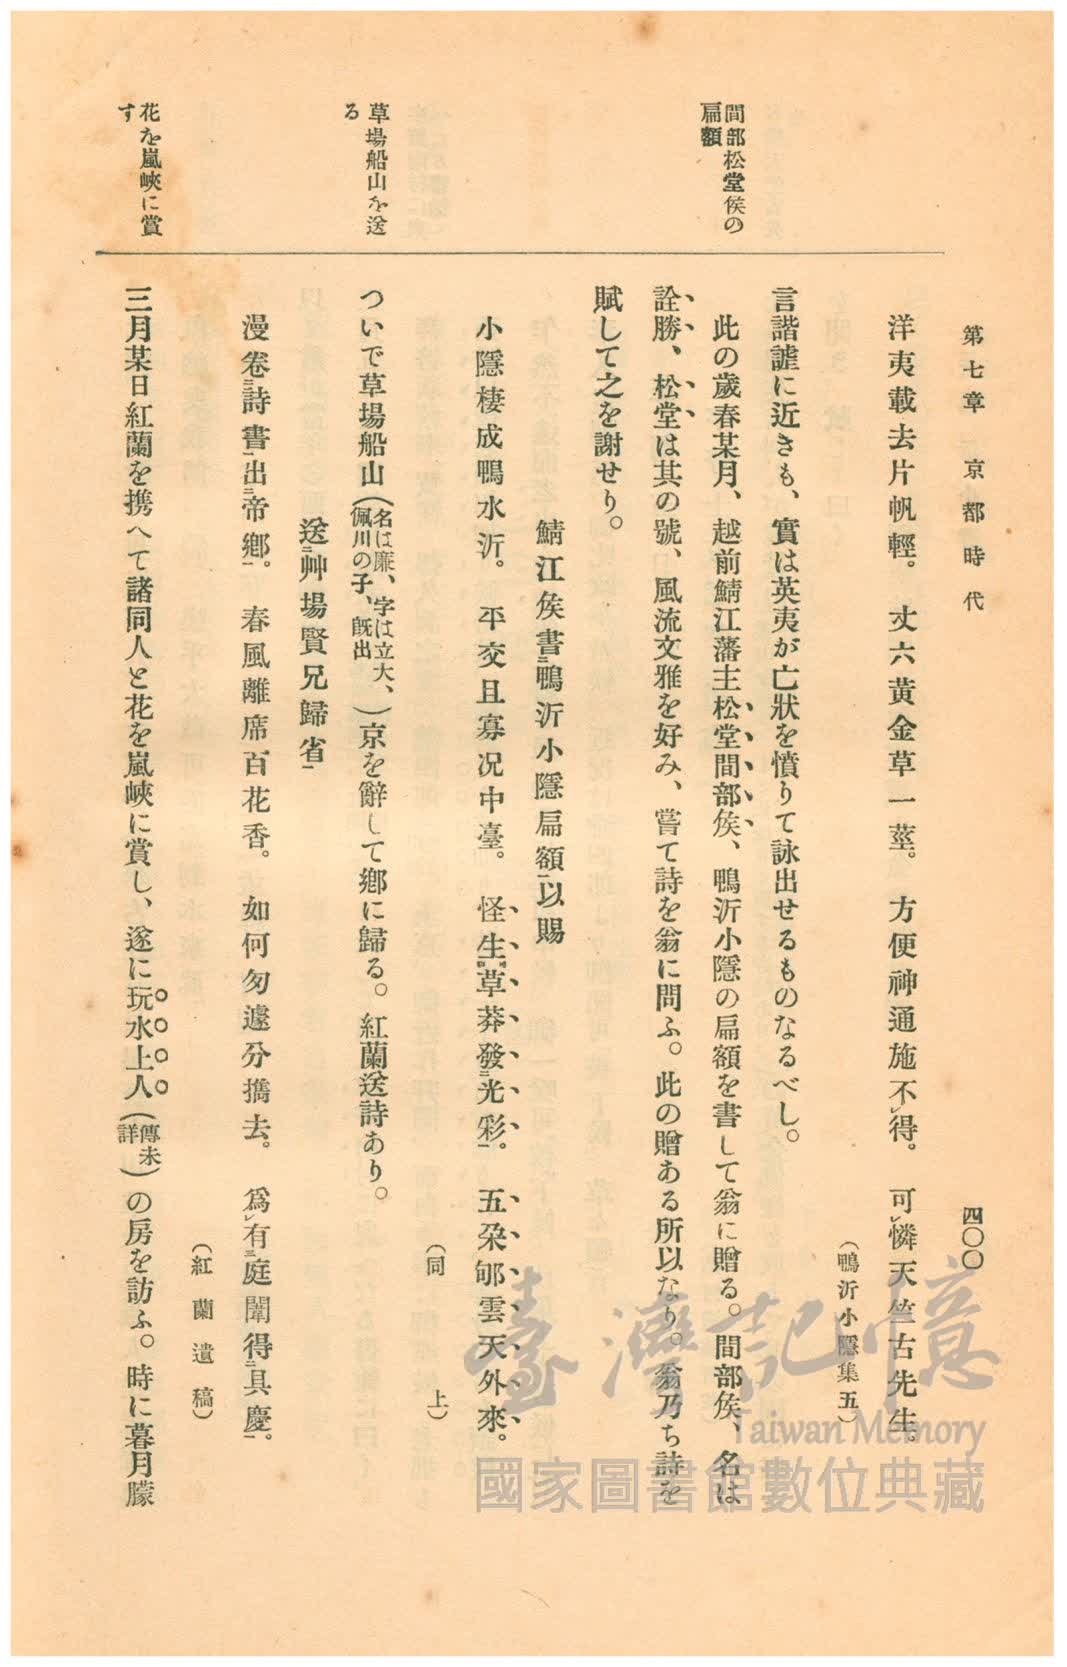 第七章 京都時代
四〇〇
洋夷載去片帆輕。丈六黃金草一莖。方便神通施不レ得。可レ憐天竺古先生。
(鴨沂小隱集五)
言諧謔に近きも、實は英夷が亡狀を憤りて詠出せるものなるべし。
間部松堂侯の
扁額
此の歲春某月、越前鯖江藩主松堂間部侯、鴨沂小隱の扁額を書して翁に贈る。間部侯、名は
詮勝、松堂は其の號、風流文雅を好み、嘗て詩を翁に問ふ。此の贈ある所以なり。翁乃ち詩を
賦して之を謝せり。
鯖江侯書二鴨沂小隱扁額一以賜
小隱棲成鴨水沂。平交且寡况中臺。怪生草莽發二光彩一。五朶郇雲天外來。
(同上)
草場船山を送
る
ついで草場船山(名は廉、字は立大、
佩川の子、既出)京を辭して鄕に歸る。紅蘭送詩あり。
送二艸場賢兄歸省一
漫卷二詩書一出二帝鄕一。春風離席百花香。如何匆遽分攜去。爲レ有三庭闈得二具慶一。
(紅蘭遺稿)
花を嵐峽に賞
す
三月某日紅蘭を携へて諸同人と花を嵐峽に賞し、遂に玩水上人(傳未
詳)の房を訪ふ。時に暮月朦
臺灣記憶
Taiwan Memory
國家圖書館數位典藏